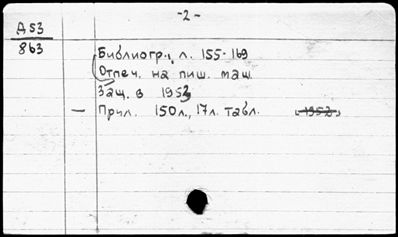 -2-
Д53
863
Библиогр.: л. 155-169
Отпеч. на пиш. маш.
Защ. в 1953
— Прил. 150л., 17л. табл. 1952